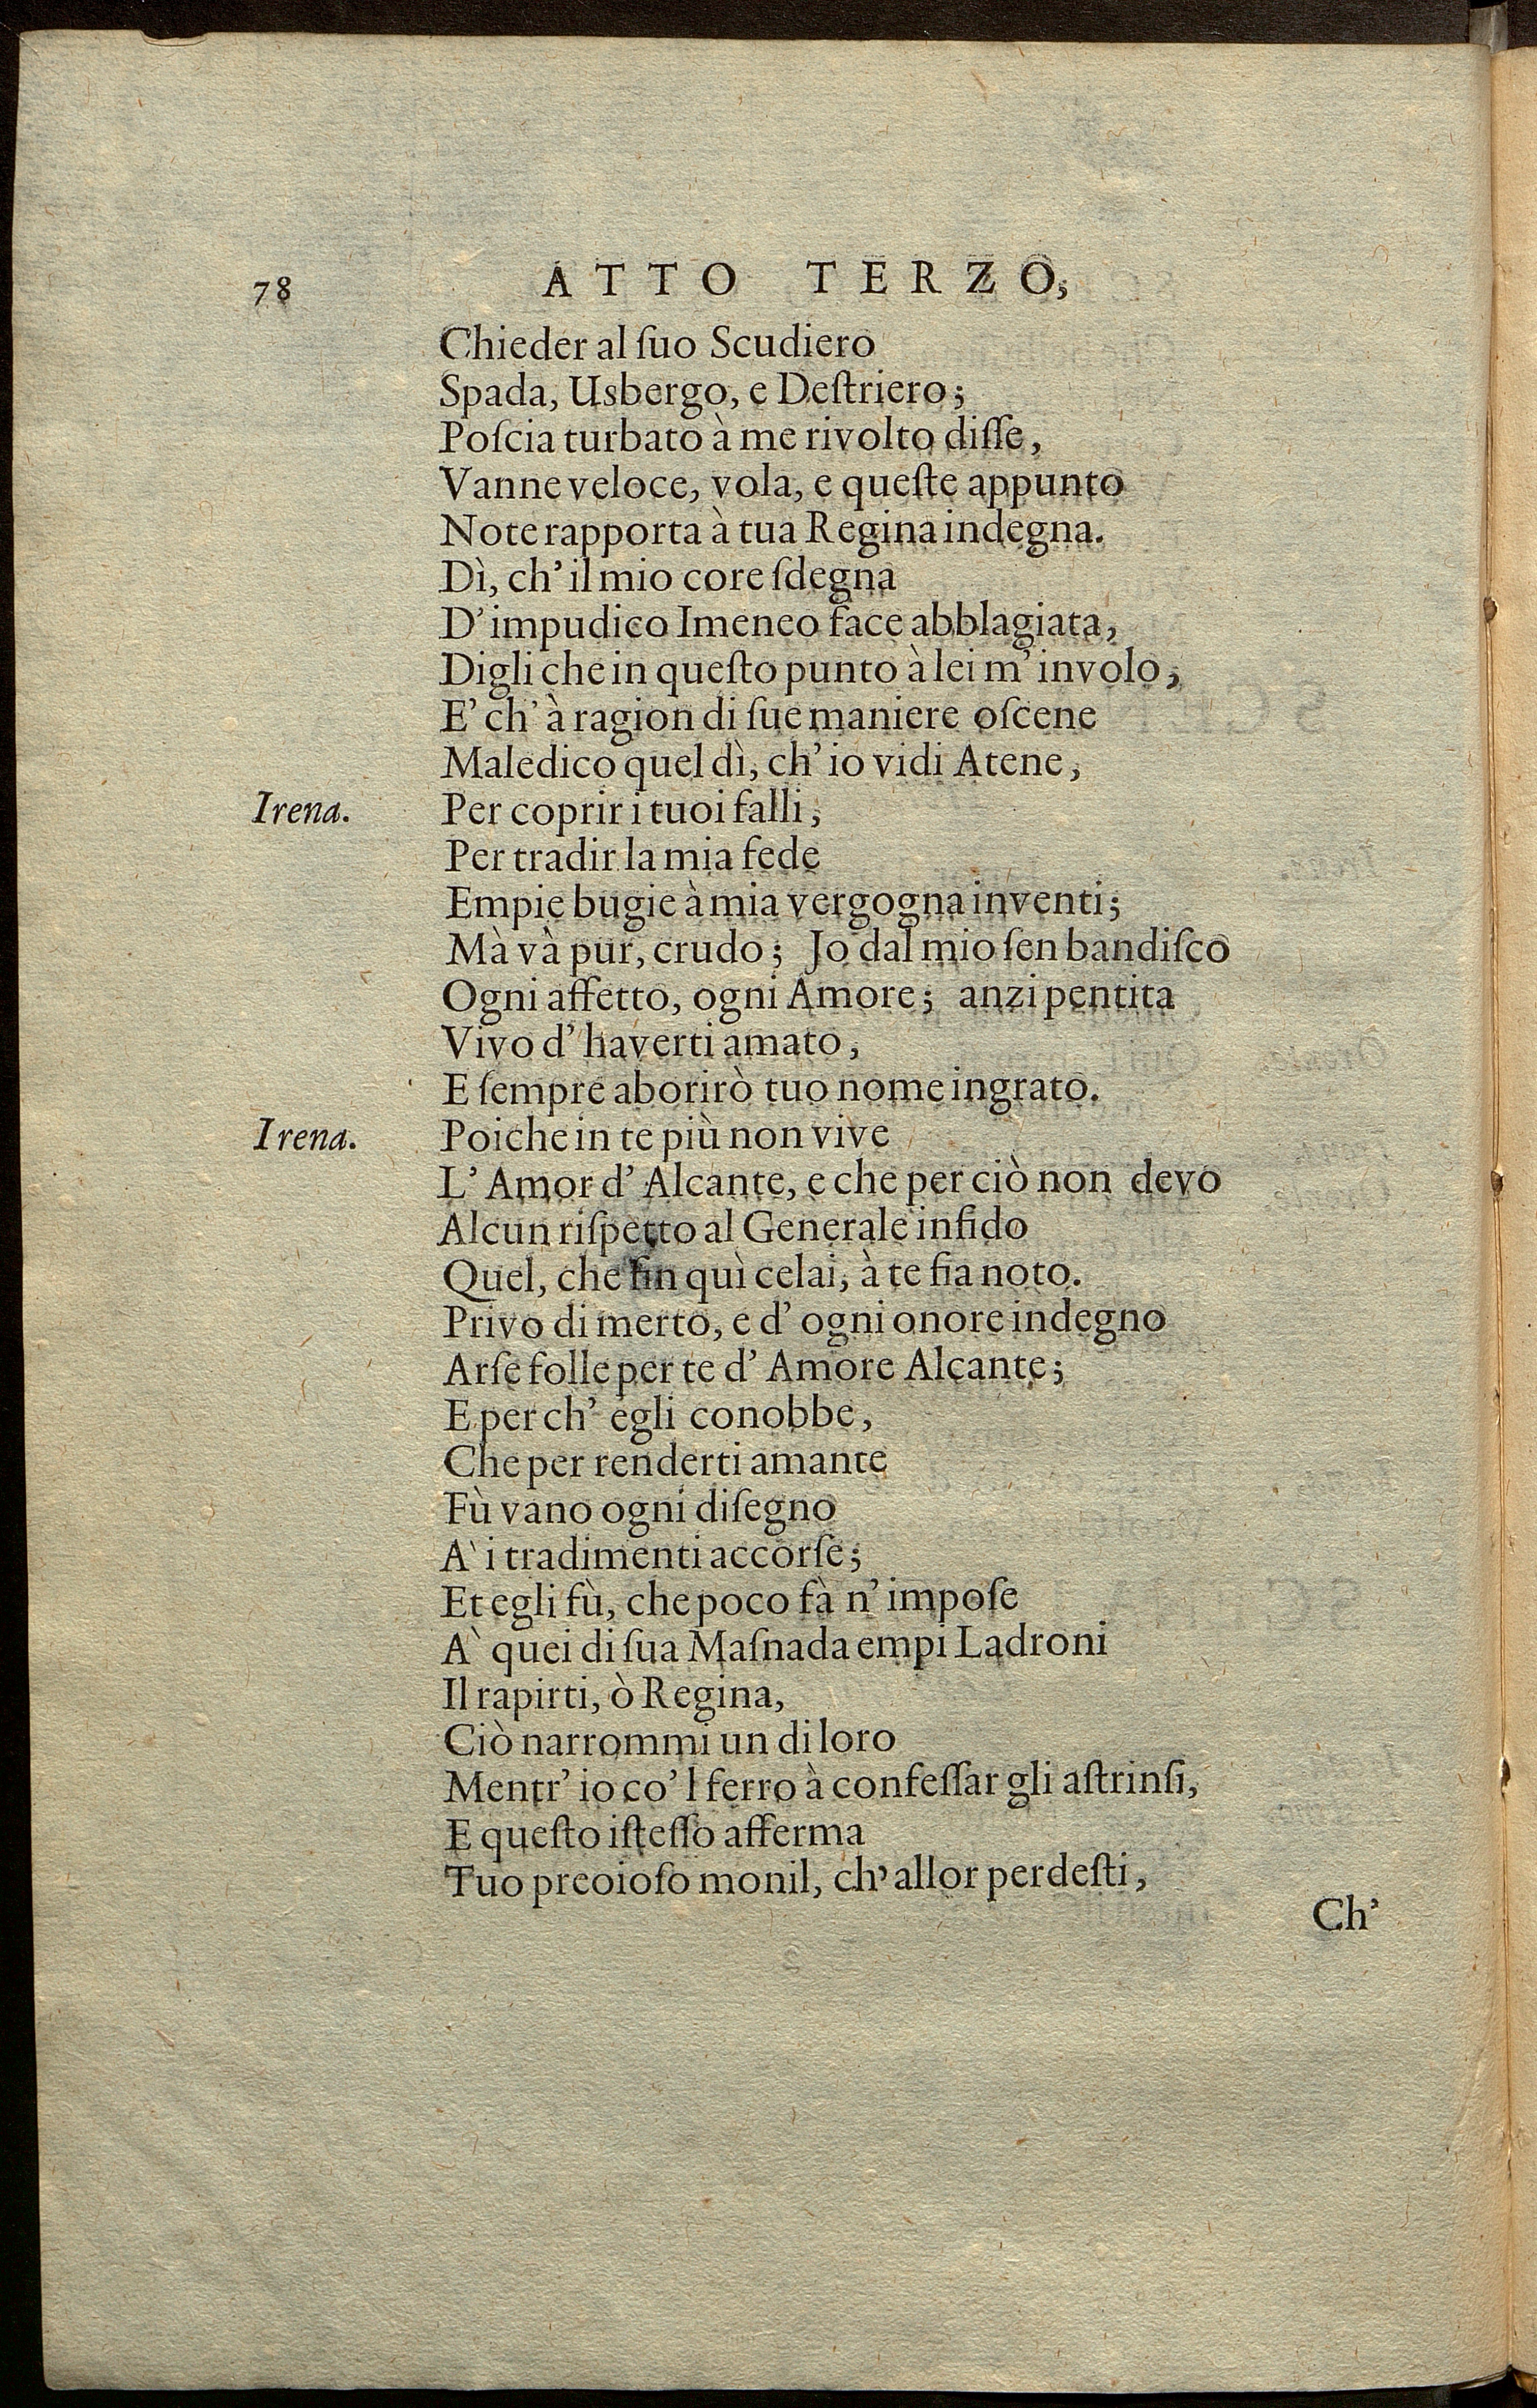 78 ATTO TERZO,
Chieder al ſuo Scudiero
Spada, Usbergo, e Deſtriero;
Poſcia turbato à me rivolto diſſe,
Vanne veloce, vola, e queſte appunto
Note rapporta à tua Regina indegna.
Dì, ch' il mio core ſdegna
D' impudico Imeneo face abblagiata,
Digli che in queſto punto à lei m' involo,
E' ch' à ragion di ſue maniere oſcene
Maledico quel dì, ch' io vidi Atene,
Irena. Per coprir i tuoi falli,
Per tradir la mia fede
Empie bugie à mia vergogna inventi;
Mà và pur, crudo; Jo dal mio ſen bandiſco
Ogni affetto, ogni Amore; anzi pentita
Vivo d' haverti amato,
E ſempre aborirò tuo nome ingrato.
Irena. Poiche in te più non vive
L' Amor d' Alcante, e che per ciò non devo
Alcun riſpetto al Generale infido
Quel, che fin quì celai, à te fia noto.
Privo di merto, e d' ogni onore indegno
Arſe folle per te d' Amore Alcante;
E per ch' egli conobbe,
Che per renderti amante
Fù vano ogni diſegno
A' i tradimenti accorſe;
Et egli fù, che poco fà n' impoſe
A' quei di ſua Maſnada empi Ladroni
Il rapirti, ò Regina,
Ciò narrommi un di loro
Mentr' io co' l ferro à confeſſar gli aſtrinſi,
E queſto iſteſſo afferma
Tuo preoioſo monil, ch' allor perdeſti,
Ch'